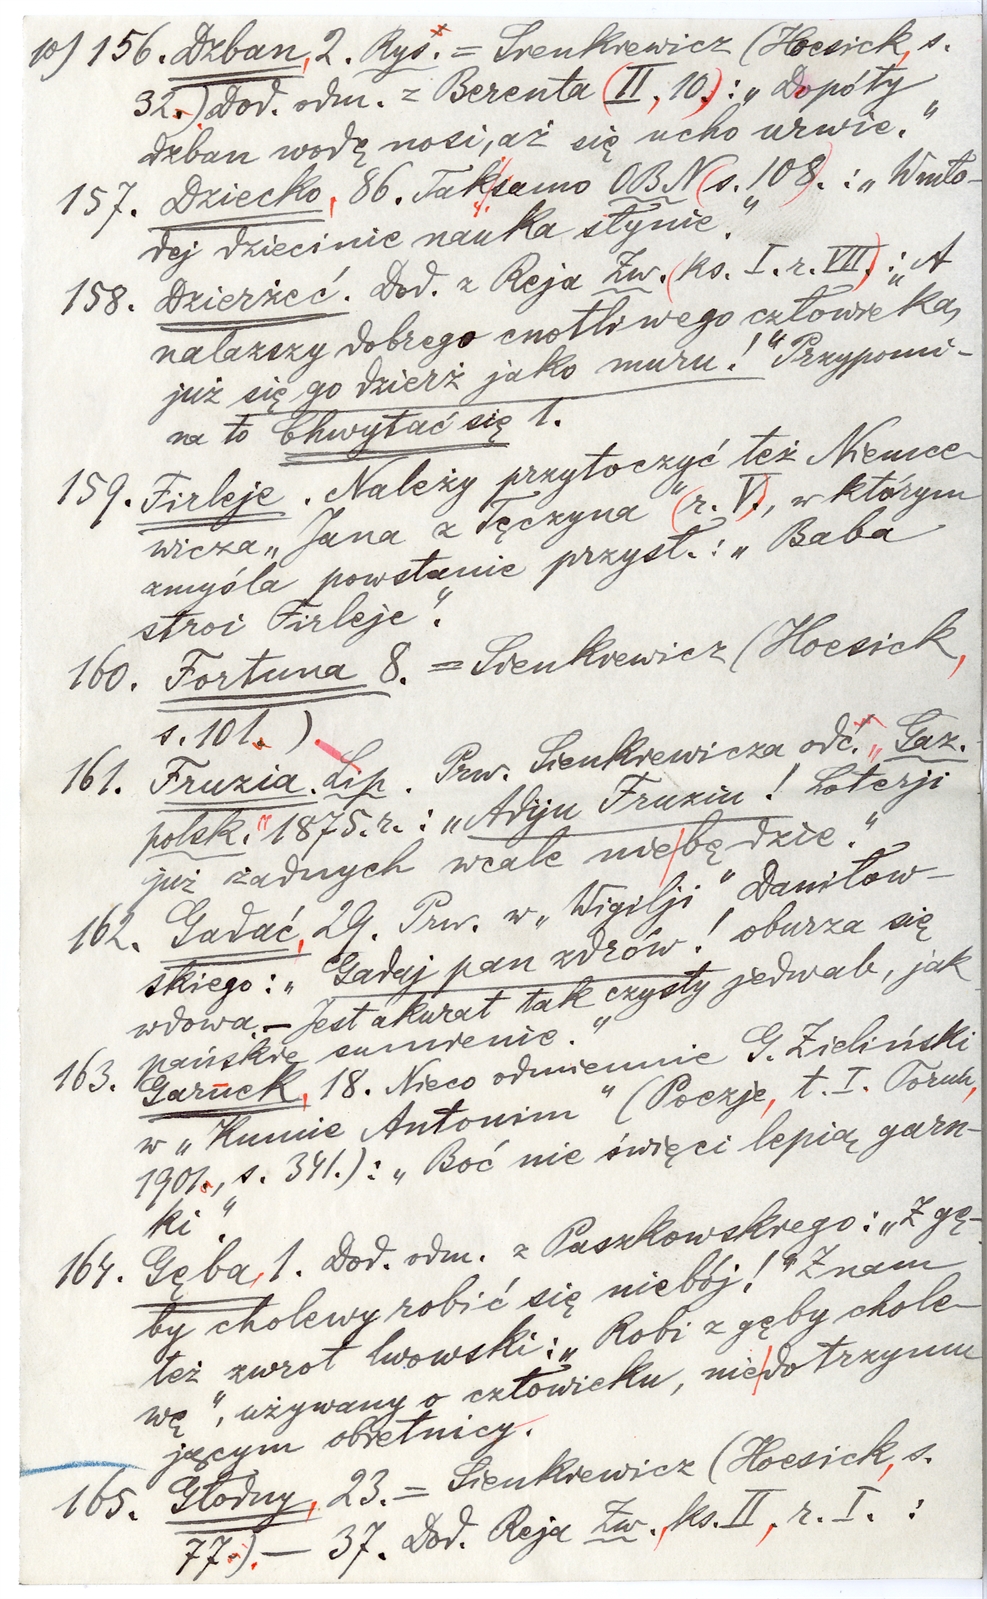 10) 156. Dzban, 2. Ryś.* = Sienkiewicz (Hoesick, s.
32.) Dod. odm. z Berenta (II, 10.) : „Dopóty
dzban wodę nosi, aż się ucho urwie."
157. Dziecko, 86. Tak samo OBN (s. 108). : „W mło-
dej dziecinie nauka słynie."
158. Dzierżeć. Dod. z Reja Zw. (ks. I. r. VII.) : „A
nalazszy dobrego cnotliwego człowieka,
już się go dzierż jako muru!" Przypomi-
na to Chwytać się 1.
159. Firleje. Należy przytoczyć też Niemce-
wicza „Jana z Tęczyna" (r. V.), w którym
zmyśla powstanie przysł. : „Baba
stroi Firleje".
160. Fortuna 8. = Sienkiewicz (Hoesick,
s. 101.)
161. Fruzia. Lip. Prw. Sienkiewicza odć. „Gaz.
polsk." 1875. r. : „Adiju Fruziu! Loterji
już żadnych wcale nie będzie."
162. Gadać, 29. Prw. w „Wigilji" Daniłow-
skiego : „Gadaj pan zdrów! oburza się
wdowa. – Jest akurat tak czysty jedwab, jak
pańskie sumienie."
163. Garnek, 18. Nieco odmiennie G. Zieliński
w „Kumie Antonim" (Poezje, t. I. Toruń,
1901., s. 341.) : „Boć nie święci lepią garn-
ki".
164. Gęba, 1. Dod. odm. z Paszkowskiego : „Z gę-
by cholewy robić się niebój!" Znam
też zwrot lwowski : „Robi z gęby chole-
wę", używany o człowieku, nie dotrzymu
jącym obietnicy.
165. Głodny, 23. = Sienkiewicz (Hoesick, s.
77.). – 37. Dod. Reja Zw., ks. II, r. I. :